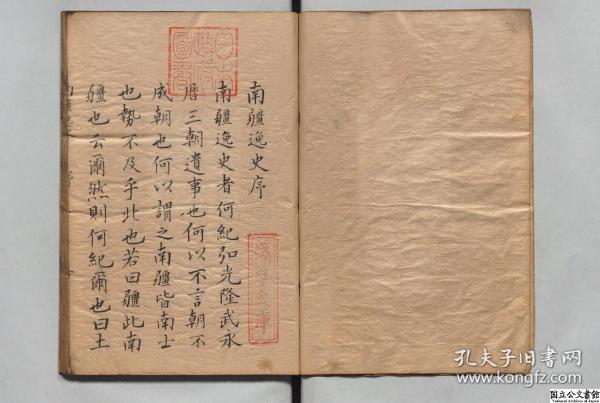 南疆逸史序
南疆逸史者何紀弘光隆武永
曆三朝遺事也何以不言朝不
成朝也何以謂之南疆皆南土
也勢不及乎北也若曰疆此南
疆也云爾然則何紀爾也曰土
日本
政府
圖書
淺草文庫
孔夫子旧书网
www.kongfz.com
国立公文書館
National Archives of Japan